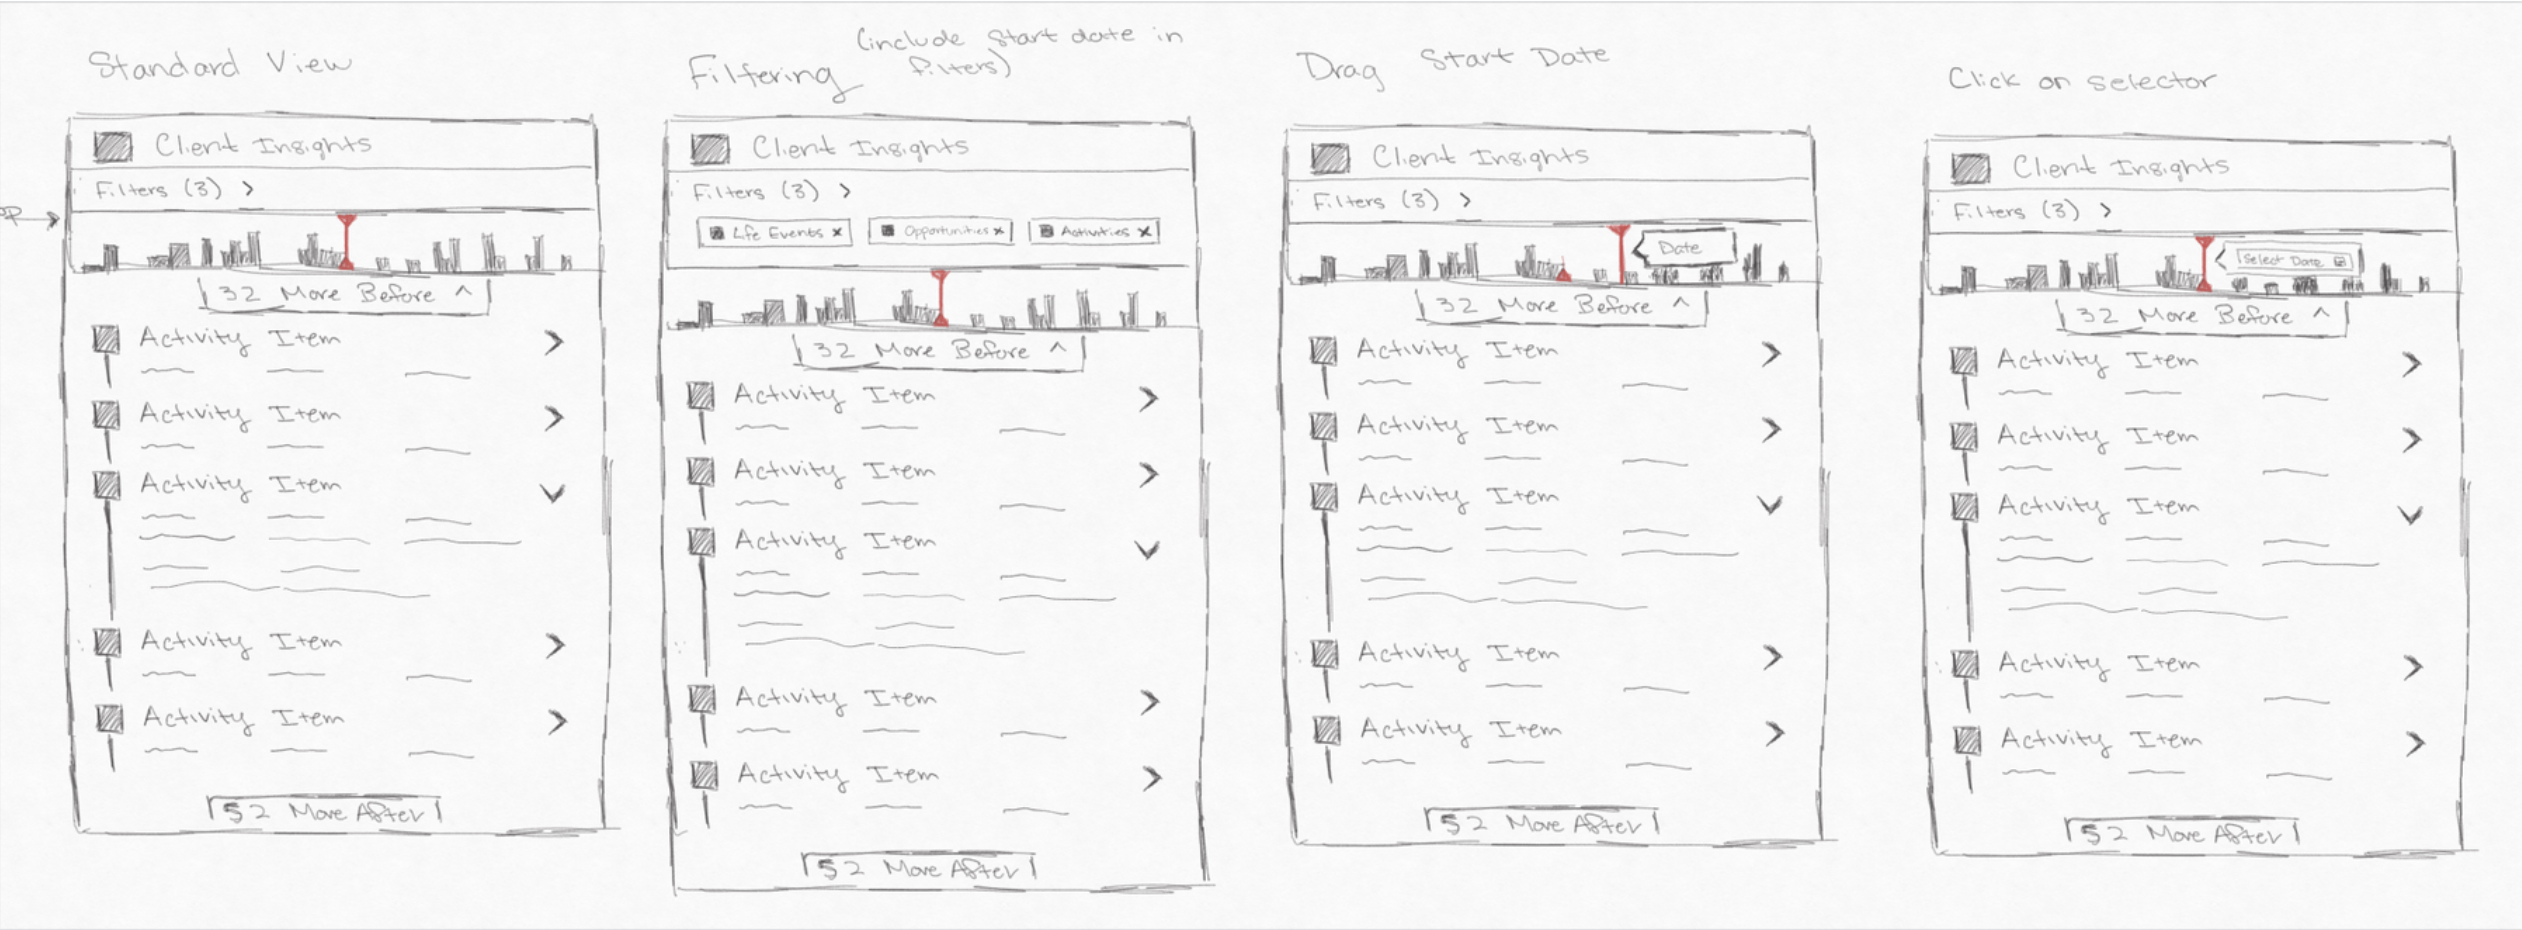 Standard View
Client Insights
Filters (3) >
32 More Before ^
Activity Item >
Activity Item >
Activity Item
Activity Item >
Activity Item >
52 More After
Filtering (include start date in filters)
Client Insights
Filters (3) >
Life Events x
Opportunities x
Activities x
32 More Before ^
Activity Item >
Activity Item >
Activity Item
Activity Item >
Activity Item >
52 More After
Drag Start Date
Client Insights
Filters (3) >
Date
32 More Before ^
Activity Item >
Activity Item >
Activity Item
Activity Item >
Activity Item >
52 More After
Click on selector
Client Insights
Filters (3) >
Select Date
32 More Before ^
Activity Item >
Activity Item >
Activity Item
Activity Item >
Activity Item >
52 More After